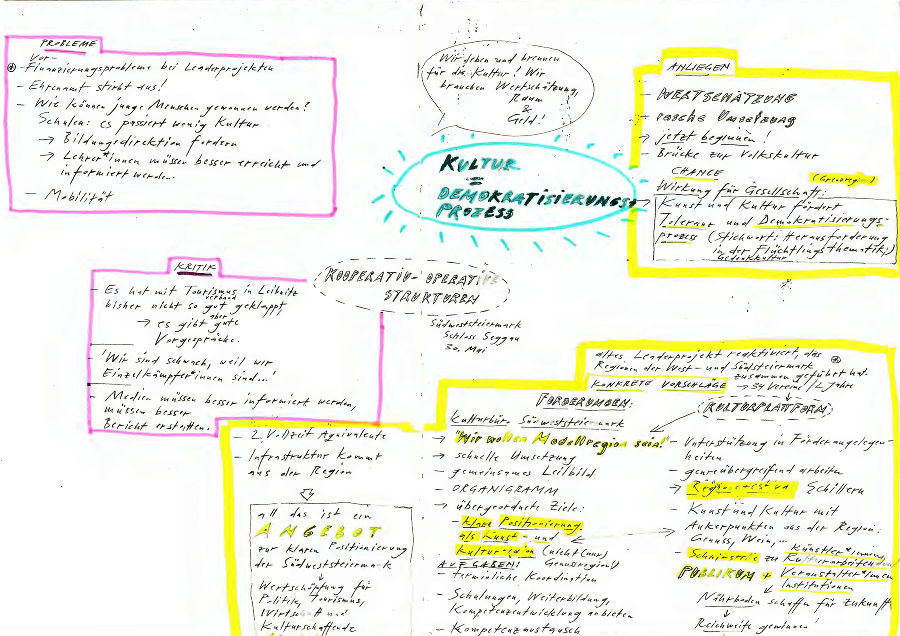 PROBLEME
Vor-
⊛ - Finanzierungsprobleme bei Leaderprojekten
- Ehrenamt stirbt aus!
- Wie können junge Menschen gewonnen werden?
Schulen: es passiert wenig Kultur
→ Bildungsdirektion fordern
→ Lehrer*innen müssen besser erreicht und
informiert werden
- Mobilität
Wir leben und brennen
für die Kultur! Wir
brauchen Wertschätzung,
Raum
&
Geld!
KULTUR
=
DEMOKRATISIERUNGS-
PROZESS
ANLIEGEN
- WERTSCHÄTZUNG
- rasche Umsetzung
→ jetzt beginnen!
- Brücke zur Volkskultur
CHANCE
(Grenzregion)
Wirkung für Gesellschaft:
→ Kunst und Kultur fördert
Toleranz und Demokratisierungs-
prozess (Stichwort: Herausforderung
in der Flüchtlingsthematik)
Gedenkkultur
KRITIK
- Es hat mit Tourismus in Leibnitz
verband
bisher nicht so gut geklappt,
aber
→ es gibt gute
Vorgespräche.
- 'Wir sind schwach, weil wir
Einzelkämpfer*innen sind...'
- Medien müssen besser informiert werden,
müssen besser
Bericht erstatten.
KOOPERATIV-OPERATIVE
STRUKTUREN
Südweststeiermark
Schloss Seggau
30. Mai
altes Leaderprojekt reaktiviert, das ⊛
Regionen der West- und Südsteiermark
zusammen geführt hat.
→ 34 Vereine / 2 Jahre
KONKRETE VORSCHLÄGE
FORDERUNGEN:
Kulturbüro Südweststeiermark
→ "Wir wollen Modellregion sein!"
→ schnelle Umsetzung
- gemeinsames Leitbild
- ORGANIGRAMM
→ übergeordnete Ziele:
- klare Positionierung
als Kunst- und
Kulturregion (nicht (nur)
Genussregion!)
AUFGABEN:
- terminliche Koordination
- Schulungen, Weiterbildung,
Kompetenzentwicklung anbieten
- Kompetenzaustausch
(KULTURPLATTFORM)
- Unterstützung in Förderangelegen-
heiten
- genreübergreifend arbeiten
→ Schillern
- Kunst und Kultur mit
→ Ankerpunkten aus der Region:
Genuss, Wein,...
- Schnittstelle zu Künstler*innen,
Kulturarbeitenden
PUBLIKUM + Veranstalter*innen
Institutionen
Nährboden schaffen für Zukunft
↓
Reichweite gewinnen!
- 2 Vollzeit Äquivalente
- Infrastruktur kommt
aus der Region
all das ist ein
ANGEBOT
zur klaren Positionierung
der Südweststeiermark
↓
Wertschöpfung für
Politik, Tourismus,
Wirtschaft und
Kulturschaffende